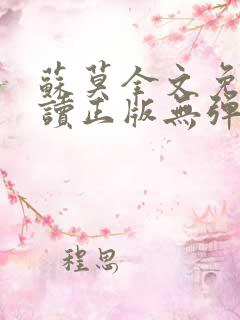 蘇莫全文免
讀正版無彈
程思